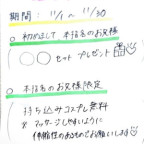 期間: 11/1 ～ 11/30
○ 初めまして 本指名のお客様
○○セット プレゼント
○ 本指名のお客様限定
持ち込みコスプレ無料
※マッサージしやすいように
伸縮性のあるものでお願いします